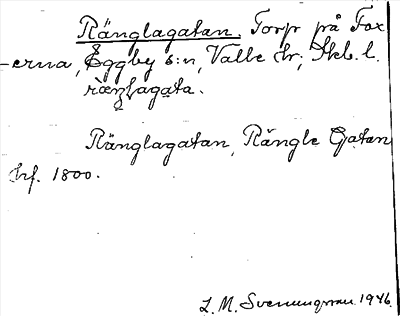 Ränglagatan. Torp på Fox
-erna, Eggby s:n, Valle hr; Skb. l.
ràŋlagata.
Ränglagatan, Rängle Gatan
hf. 1800.
L. M. Svenungsson 1946.